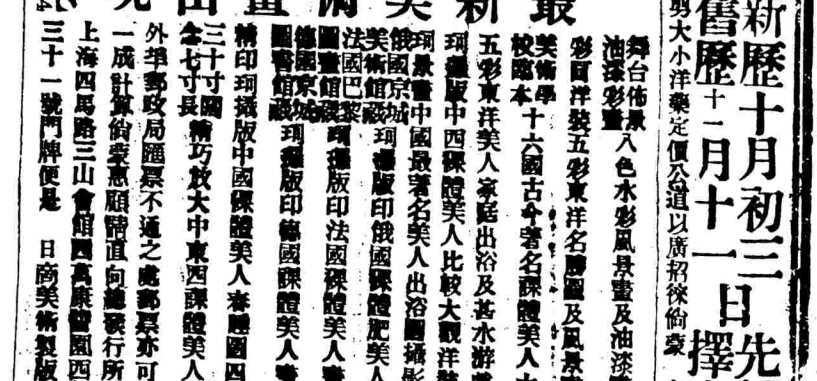 新歷十月初三先
舊歷十一月十一日擇
剪大小洋藥定價公道以廣招徠倘蒙
最新美術畫出
舞台佈景
油漆彩畫
八色水彩風景畫及油漆
彩百洋裝五彩東洋名勝圖及風景
美術學
校臨本
十六國古今著名裸體美人
五彩東洋美人家庭出浴及甚水游
珂羅版中西裸體美人比較大觀洋裝
珂景畫中國最著名美人出浴圖攝影
俄國京城
美術館藏
珂羅版印俄國裸體肥美人
法國巴黎
圖書館藏
珂羅版印法國裸體美人
德國京城
圖書館藏
珂羅版印德國裸體美人
精印珂羅版中國裸體美人春睡圖四
三十寸闊
念七寸長
精巧放大中東西裸體美人
外埠郵政局匯票不通之處郵票亦可
一成計算倘蒙惠顧請直向總發行所
上海四馬路三山會館西萬康醬園四
三十一號門牌便是 日商美術製版